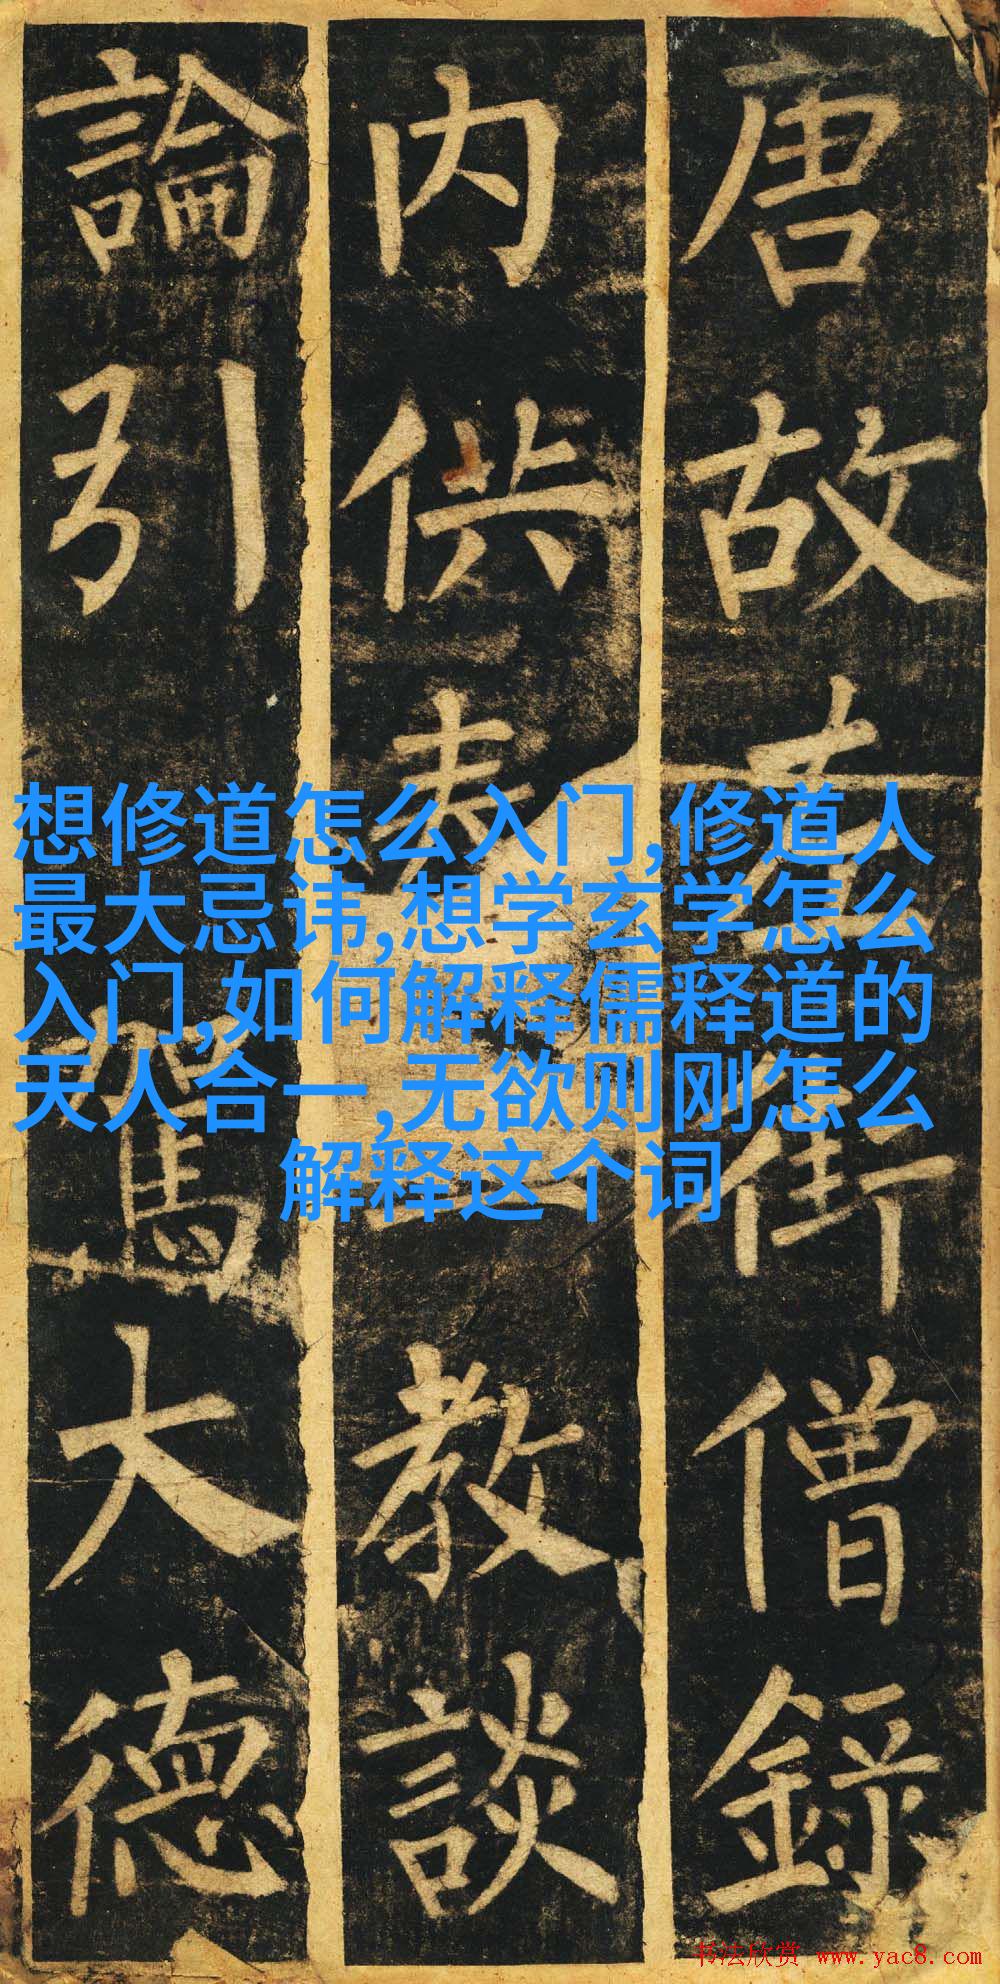 唐故左街僧錄
内供奉三教談
論引駕大德
想修道怎么入门,修道人
最大忌讳,想学玄学怎么
入门,如何解释儒释道的
天人合一,无欲则刚怎么
解释这个词
书法欣赏 www.yac8.com